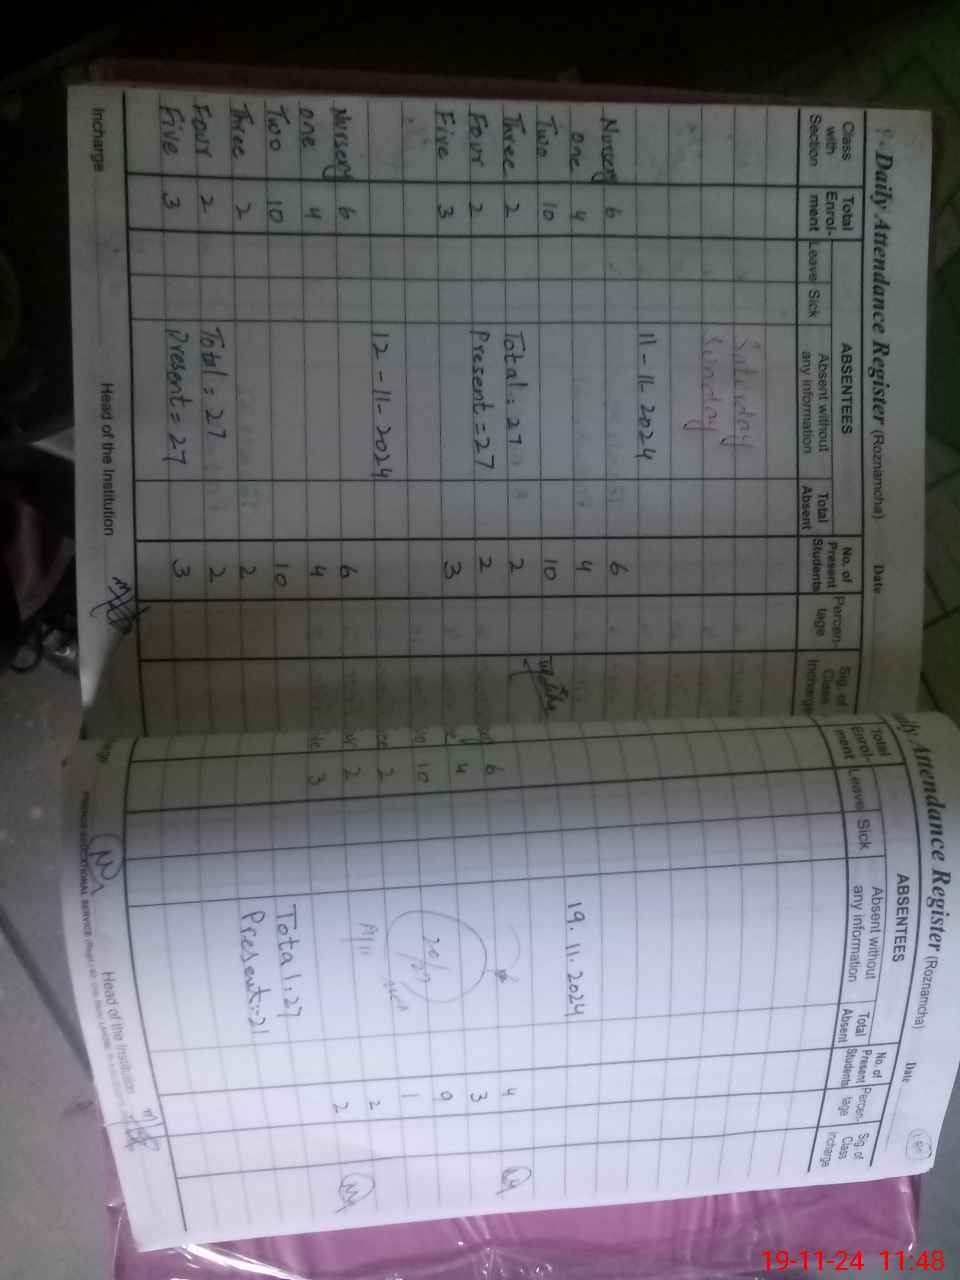 Daily Attendance Register (Roznamcha) Date
Class with Section Total Enrol-ment ABSENTEES Leave Sick Absent without any information Total Absent No. of Present Students Percen-tage Sig. of Class Incharge
Saturday
Sunday
11-11-2024
Nursery 6 6
one 4 4
Two 10 10
Three 2 Total: 27 2
Four 2 Present = 27 2
Five 3 3
12-11-2024
Nursery 6 6
one 4 4
Two 10 10
Three 2 2
Four 2 Total = 27 2
Five 3 Present = 27 3
Incharge Head of the Institution
Attendance Register (Roznamcha) Date
Total Enrol-ment ABSENTEES Leave Sick Absent without any information Total Absent No. of Present Students Percen-tage Sig. of Class Incharge
19.11.2024
6 4
4 3
10
2 1
2 2
3 2
Total: 27
Present:-21
Head of the Institution
EDUCATIONAL SERVICE
19-11-24 11:48